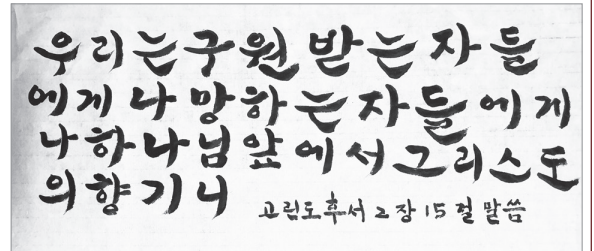 우리는구원받는자들
에게나망하는자들에게
나하나님앞에서그리스도
의향기니
고린도후서 2장 15절 말씀